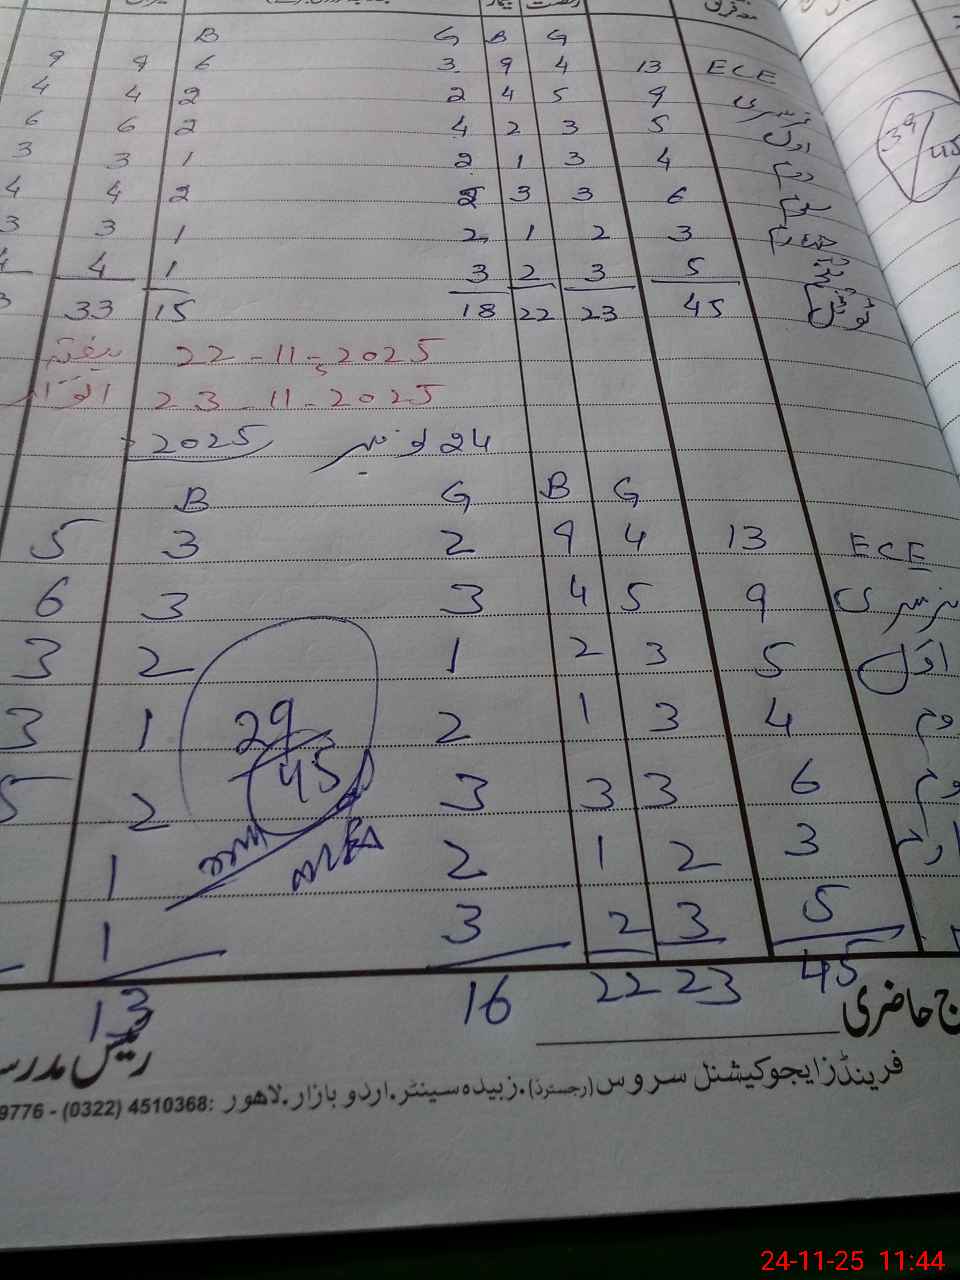 B G B G
9 9 6 3 9 4 13 ECE
4 4 2 2 4 5 9 نرسری
6 6 2 4 2 3 5 اول
3 3 1 2 1 3 4 دوم
4 4 2 2 3 3 6 سوم
3 3 1 2 1 2 3 چہارم
4 4 1 3 2 3 5
3 33 15 18 22 23 45 ٹوٹل
39/45
22-11-2025 ہفتہ
23-11-2025 اتوار
24 نومبر 2025
B G B G
5 3 2 9 4 13 ECE
6 3 3 4 5 9 نرسری
3 2 1 2 3 5 اول
3 1 2 1 3 4 دوم
5 2 3 3 3 6 وم
1 2 1 2 3 ارم
1 3 2 3 5
13 16 22 23 45
29/45
ج حاضری
رئیس مدرسہ
فرینڈز ایجوکیشنل سروس (رجسٹرڈ). زبیدہ سینٹر. اردو بازار. لاہور :9776 - (0322) 4510368
24-11-25 11:44